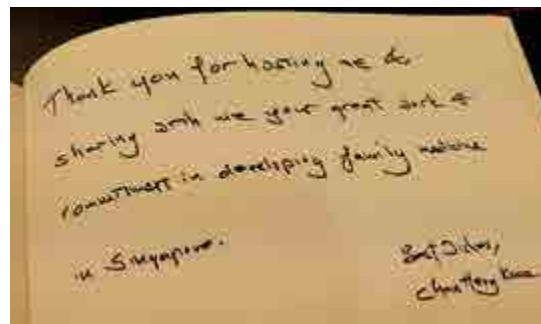 Thank you for hosting me &
sharing with me your great work &
commitment in developing family medicine
in Singapore.
Best Wishes,